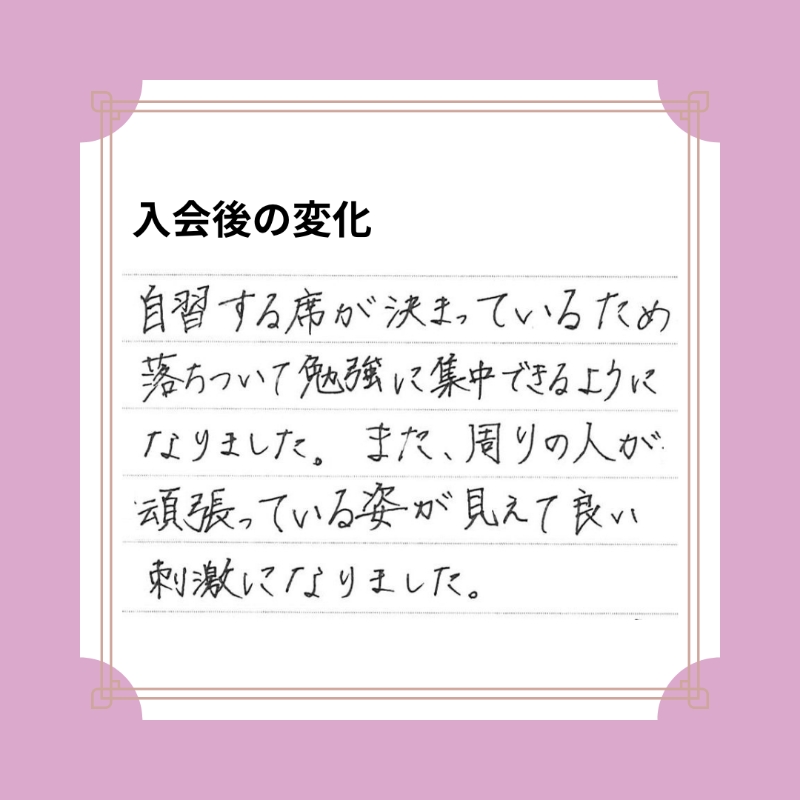 入会後の変化
自習する席が決まっているため
落ちついて勉強に集中できるように
なりました。また、周りの人が
頑張っている姿が見えて良い
刺激になりました。